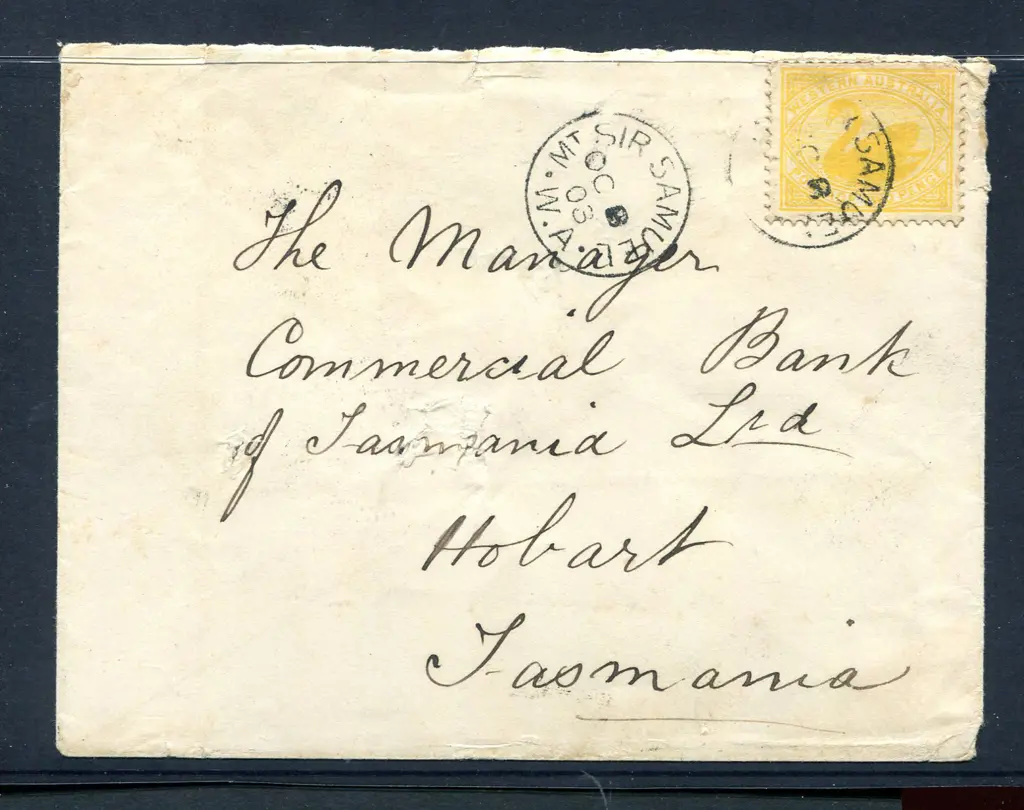 WESTERN AUSTRALIA
PENCE
SAMUEL
MT SIR SAMUEL
OC 8
03
W.A.
The Manager
Commercial Bank
of Tasmania Ltd
Hobart
Tasmania